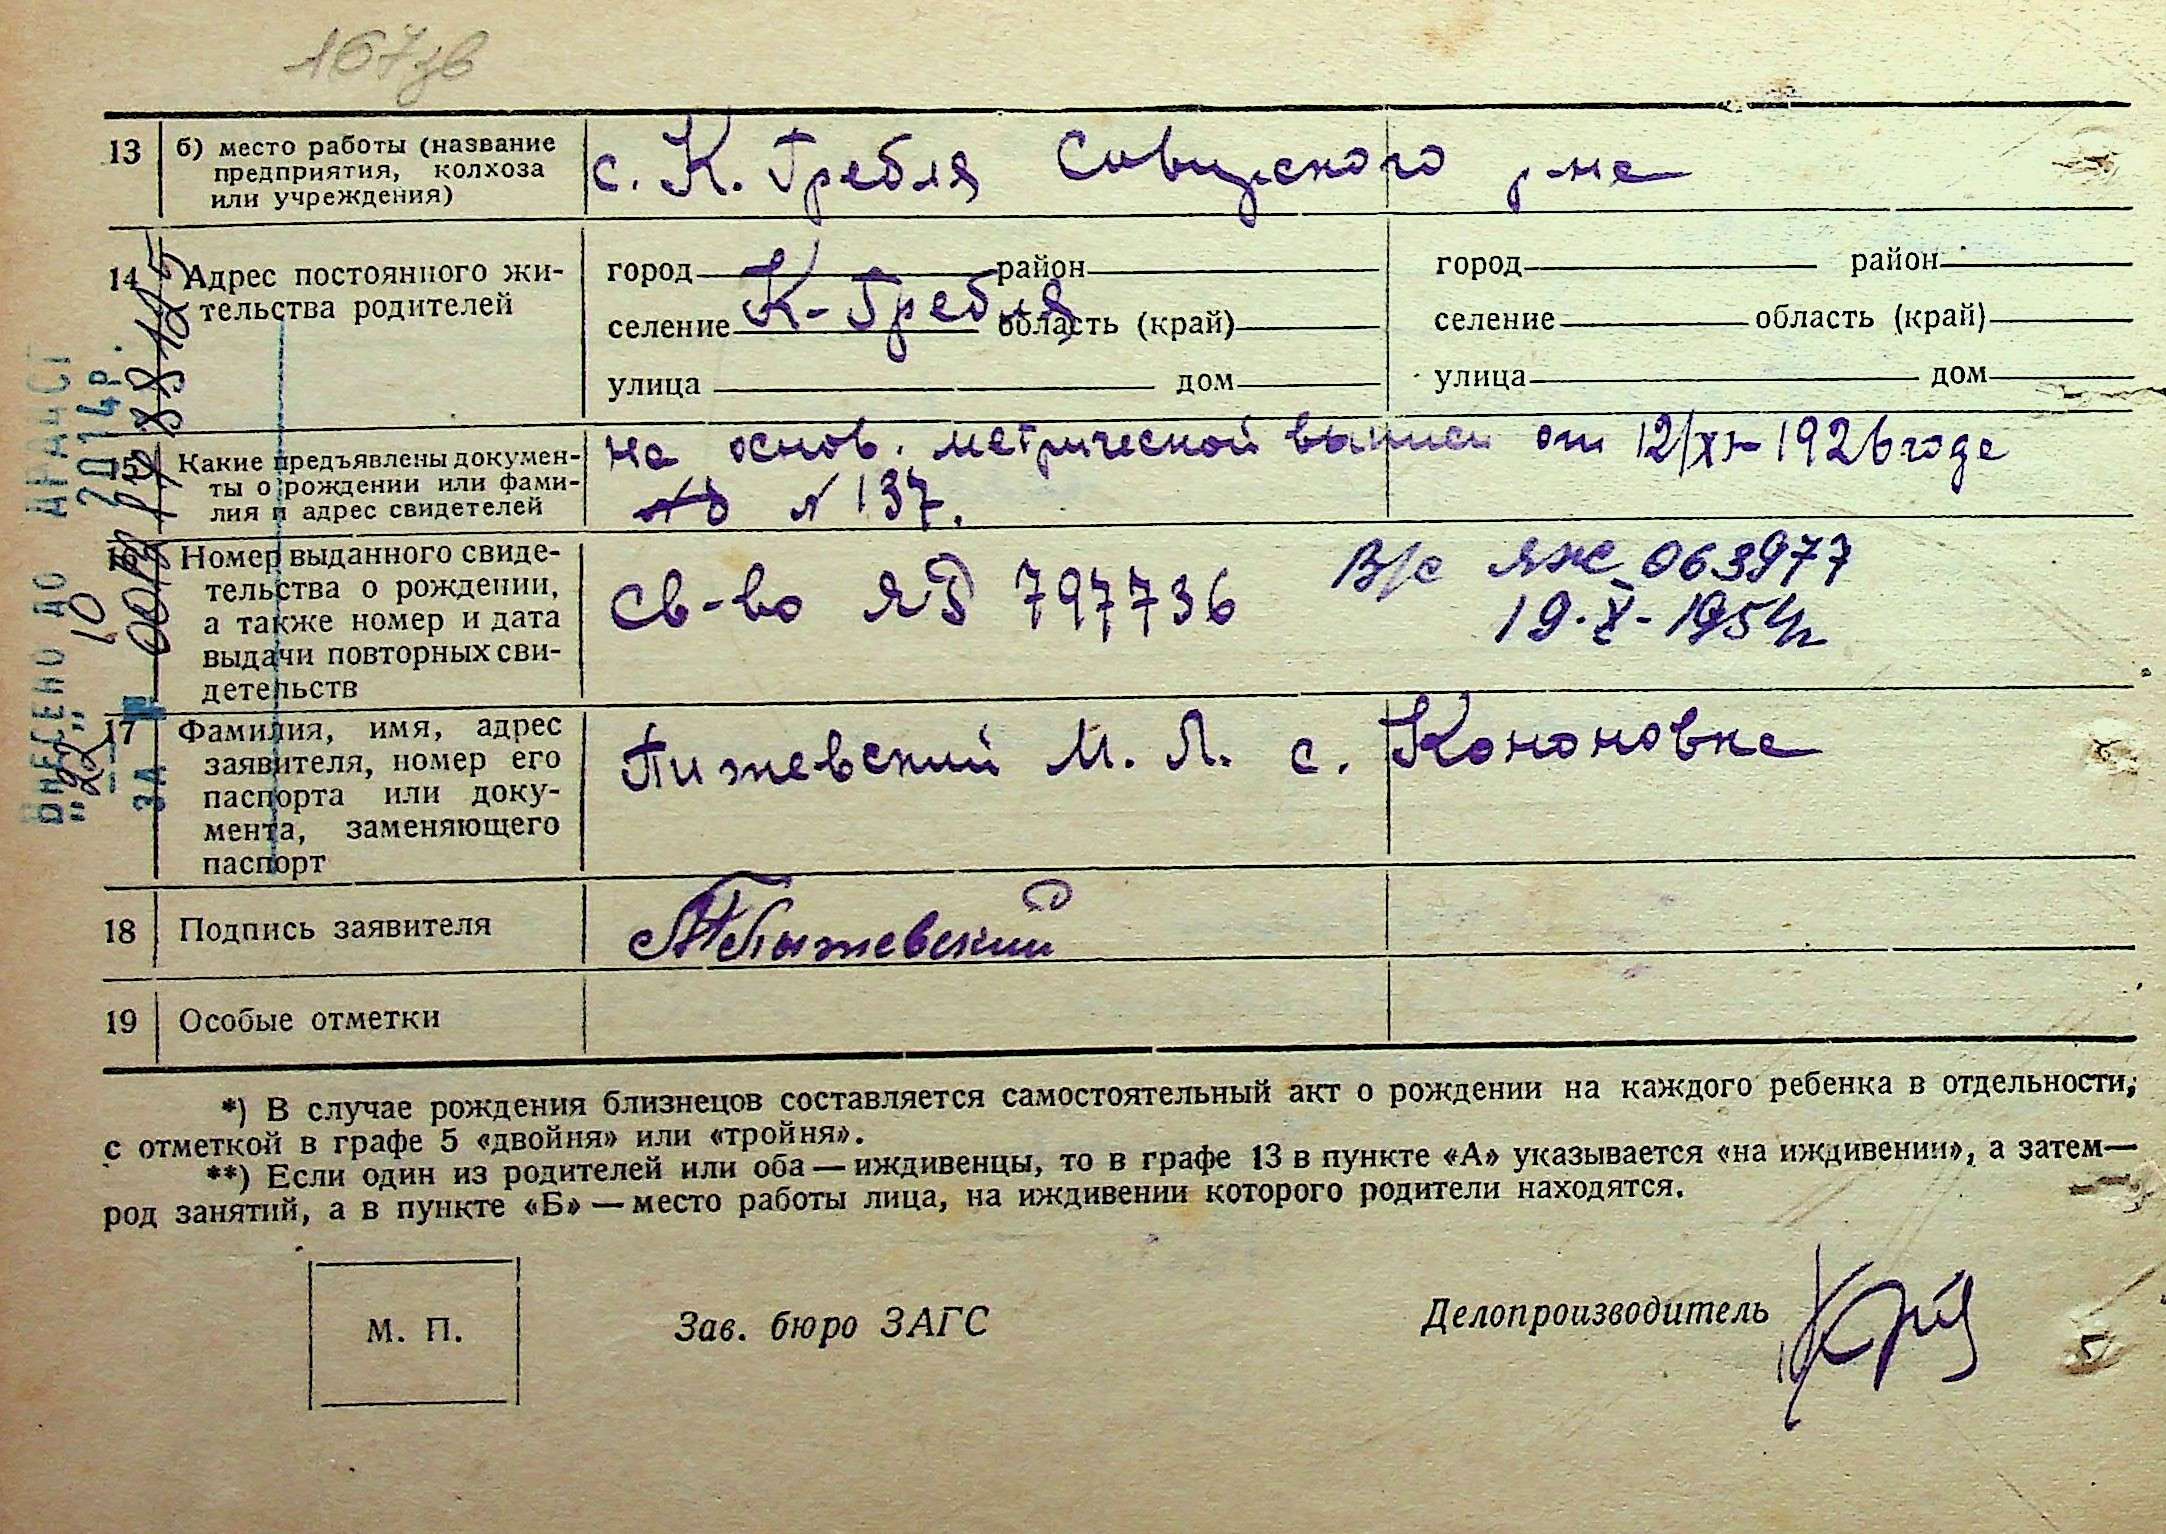 167зв
13 б) место работы (название
предприятия, колхоза
или учреждения)
с. К. Гребля Савицского р-на
14 Адрес постоянного жи-
тельства родителей
город район
селение К-Гребля область (край)
улица дом
город район
селение область (край)
улица дом
15 Какие предъявлены докумен-
ты о рождении или фами-
лия и адрес свидетелей
на основ. метрической выписи от 12/XI-1926 года
№ 137.
16 Номер выданного свиде-
тельства о рождении,
а также номер и дата
выдачи повторных сви-
детельств
Св-во ЯБ 797736
В/с ЯЖ 063977
19-X-1954г
17 Фамилия, имя, адрес
заявителя, номер его
паспорта или доку-
мента, заменяющего
паспорт
Пижевский М. Л. с. Кононовка
18 Подпись заявителя
Пыжевский
19 Особые отметки
*) В случае рождения близнецов составляется самостоятельный акт о рождении на каждого ребенка в отдельности,
с отметкой в графе 5 «двойня» или «тройня».
**) Если один из родителей или оба — иждивенцы, то в графе 13 в пункте «А» указывается «на иждивении», а затем—
род занятий, а в пункте «Б» — место работы лица, на иждивении которого родители находятся.
М. П.
Зав. бюро ЗАГС
Делопроизводитель
ВНЕСЕНО ДО ДРАЦСГ
"22" 10 2014р.
ЗА №